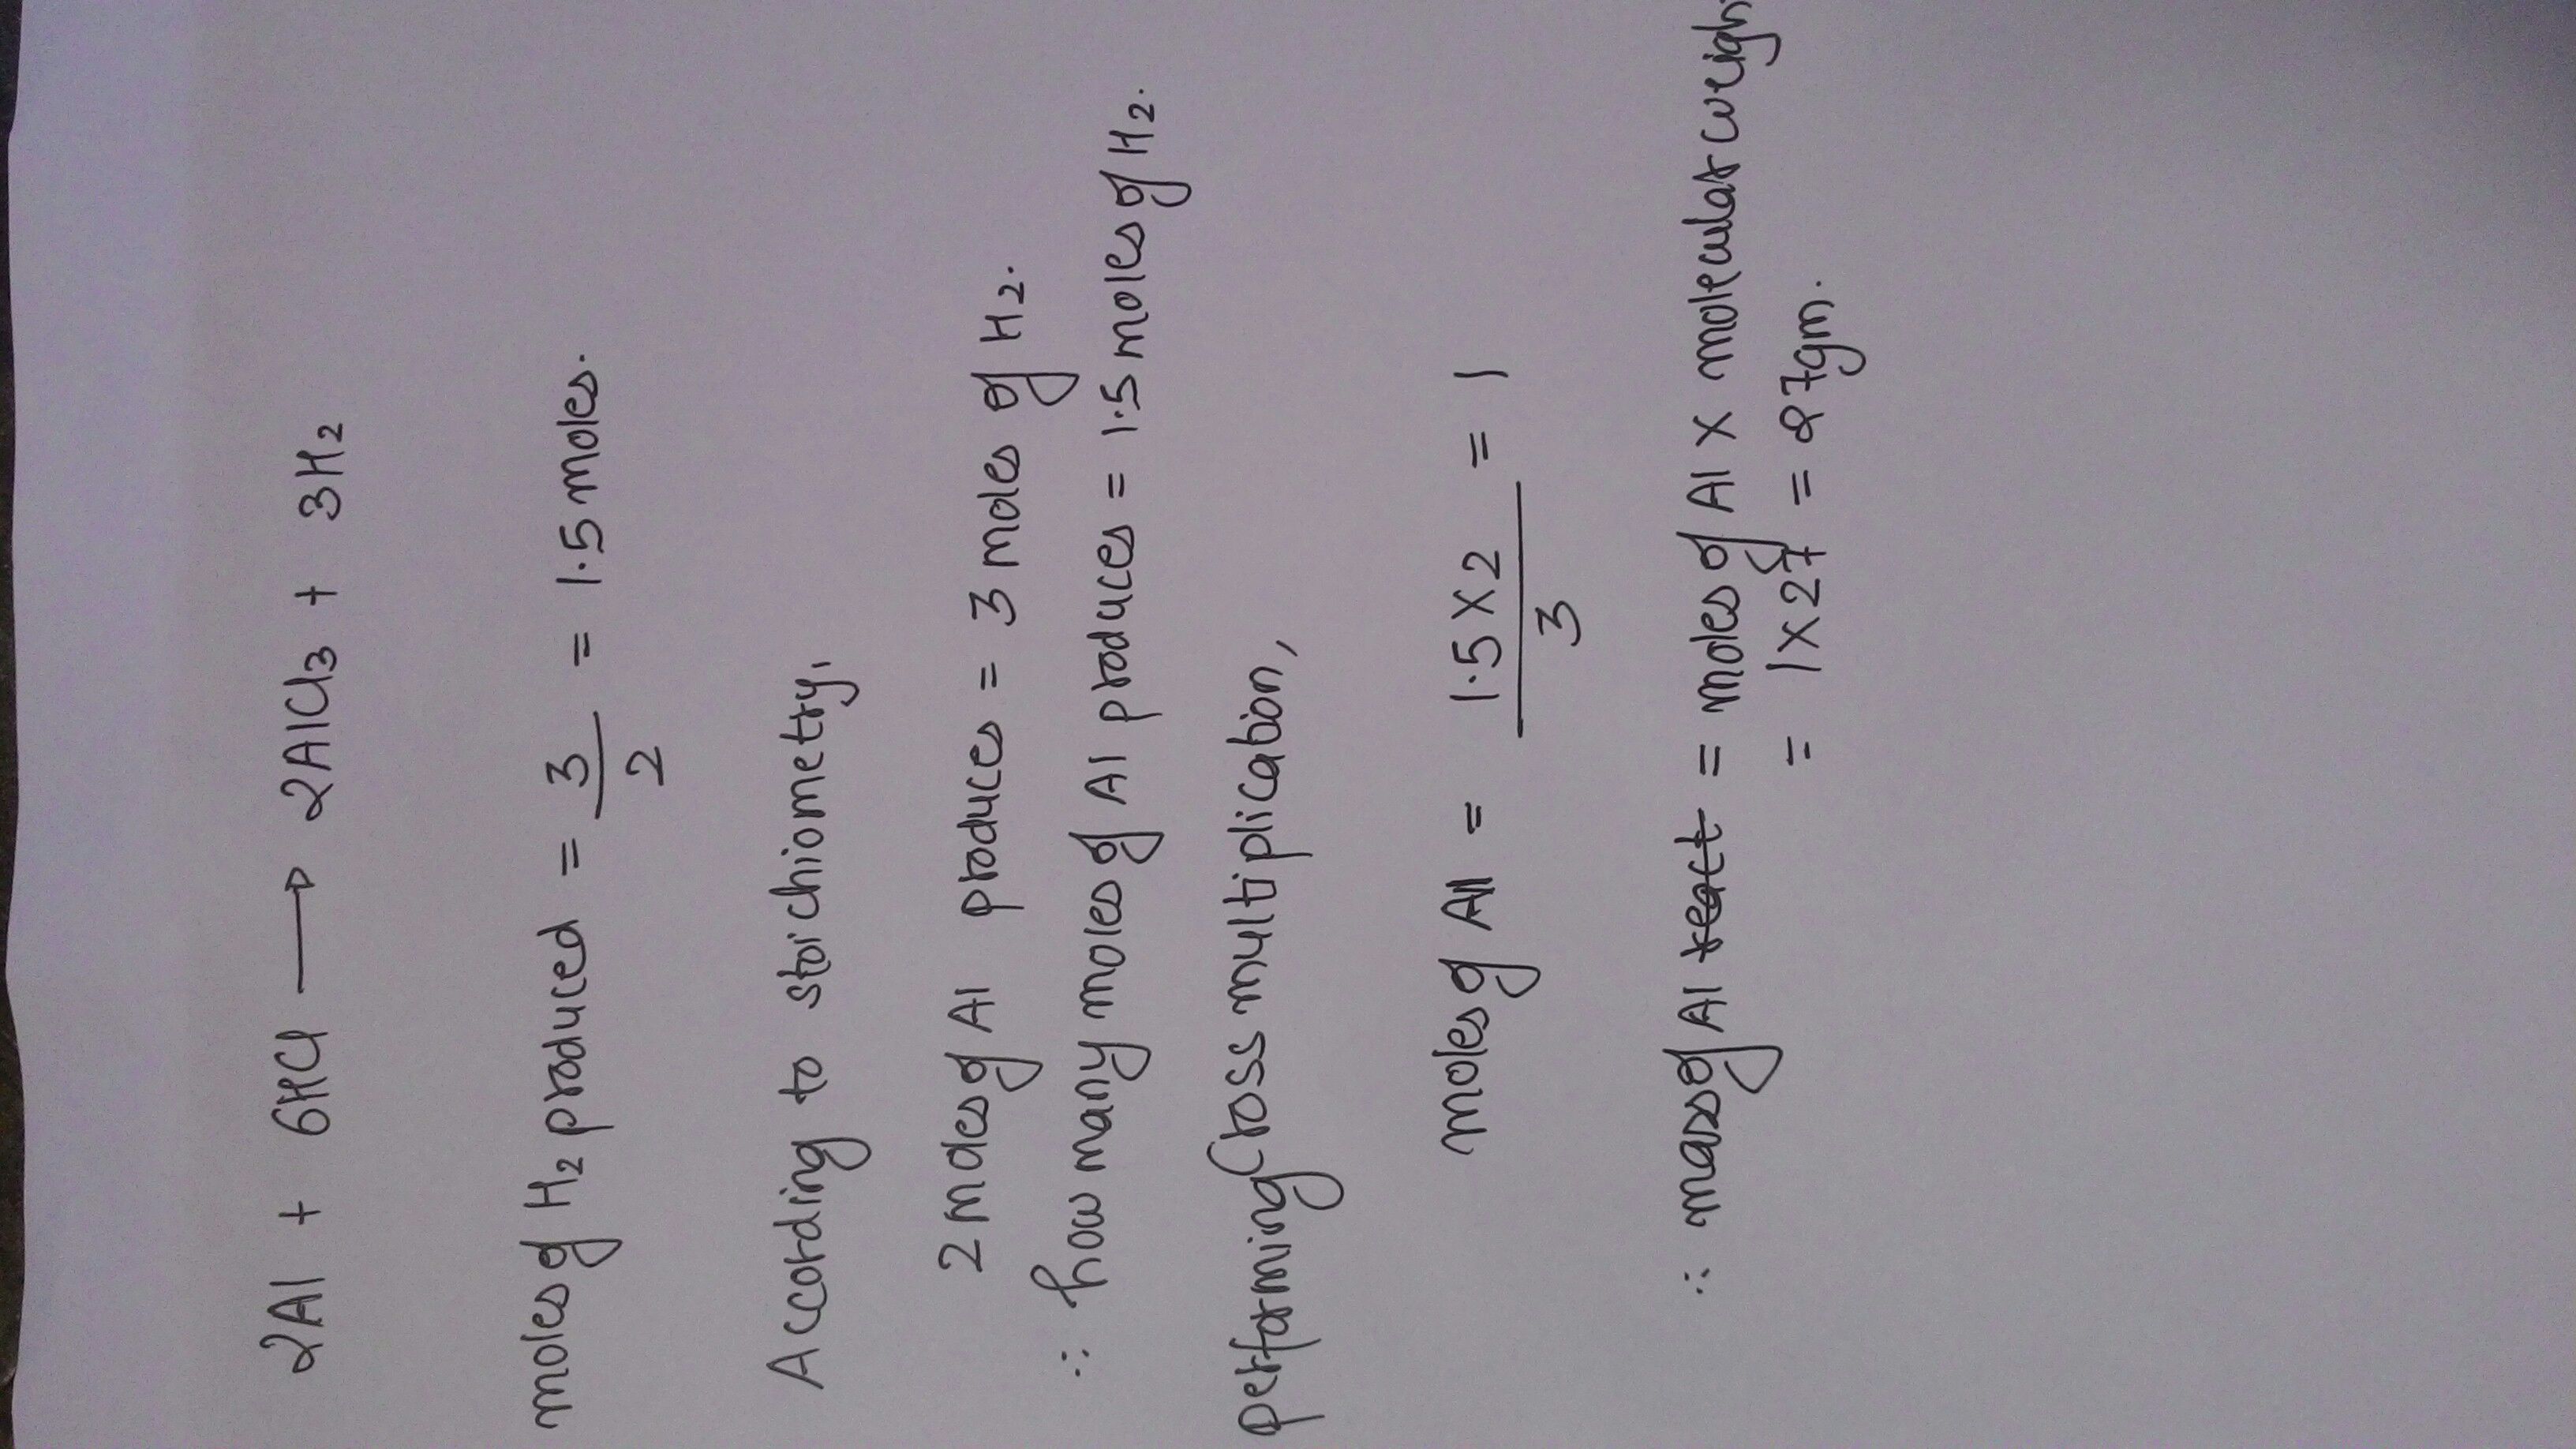 2Al + 6HCl → 2AlCl₃ + 3H₂
moles of H₂ produced = 3/2 = 1.5 moles.
According to stoichiometry,
2 moles of Al produces = 3 moles of H₂.
∴ how many moles of Al produces = 1.5 moles of H₂.
performing Cross multiplication,
moles of Al = 1.5 × 2 / 3 = 1
∴ mass of Al react = moles of Al × molecular weigh
= 1 × 27 = 27gm.